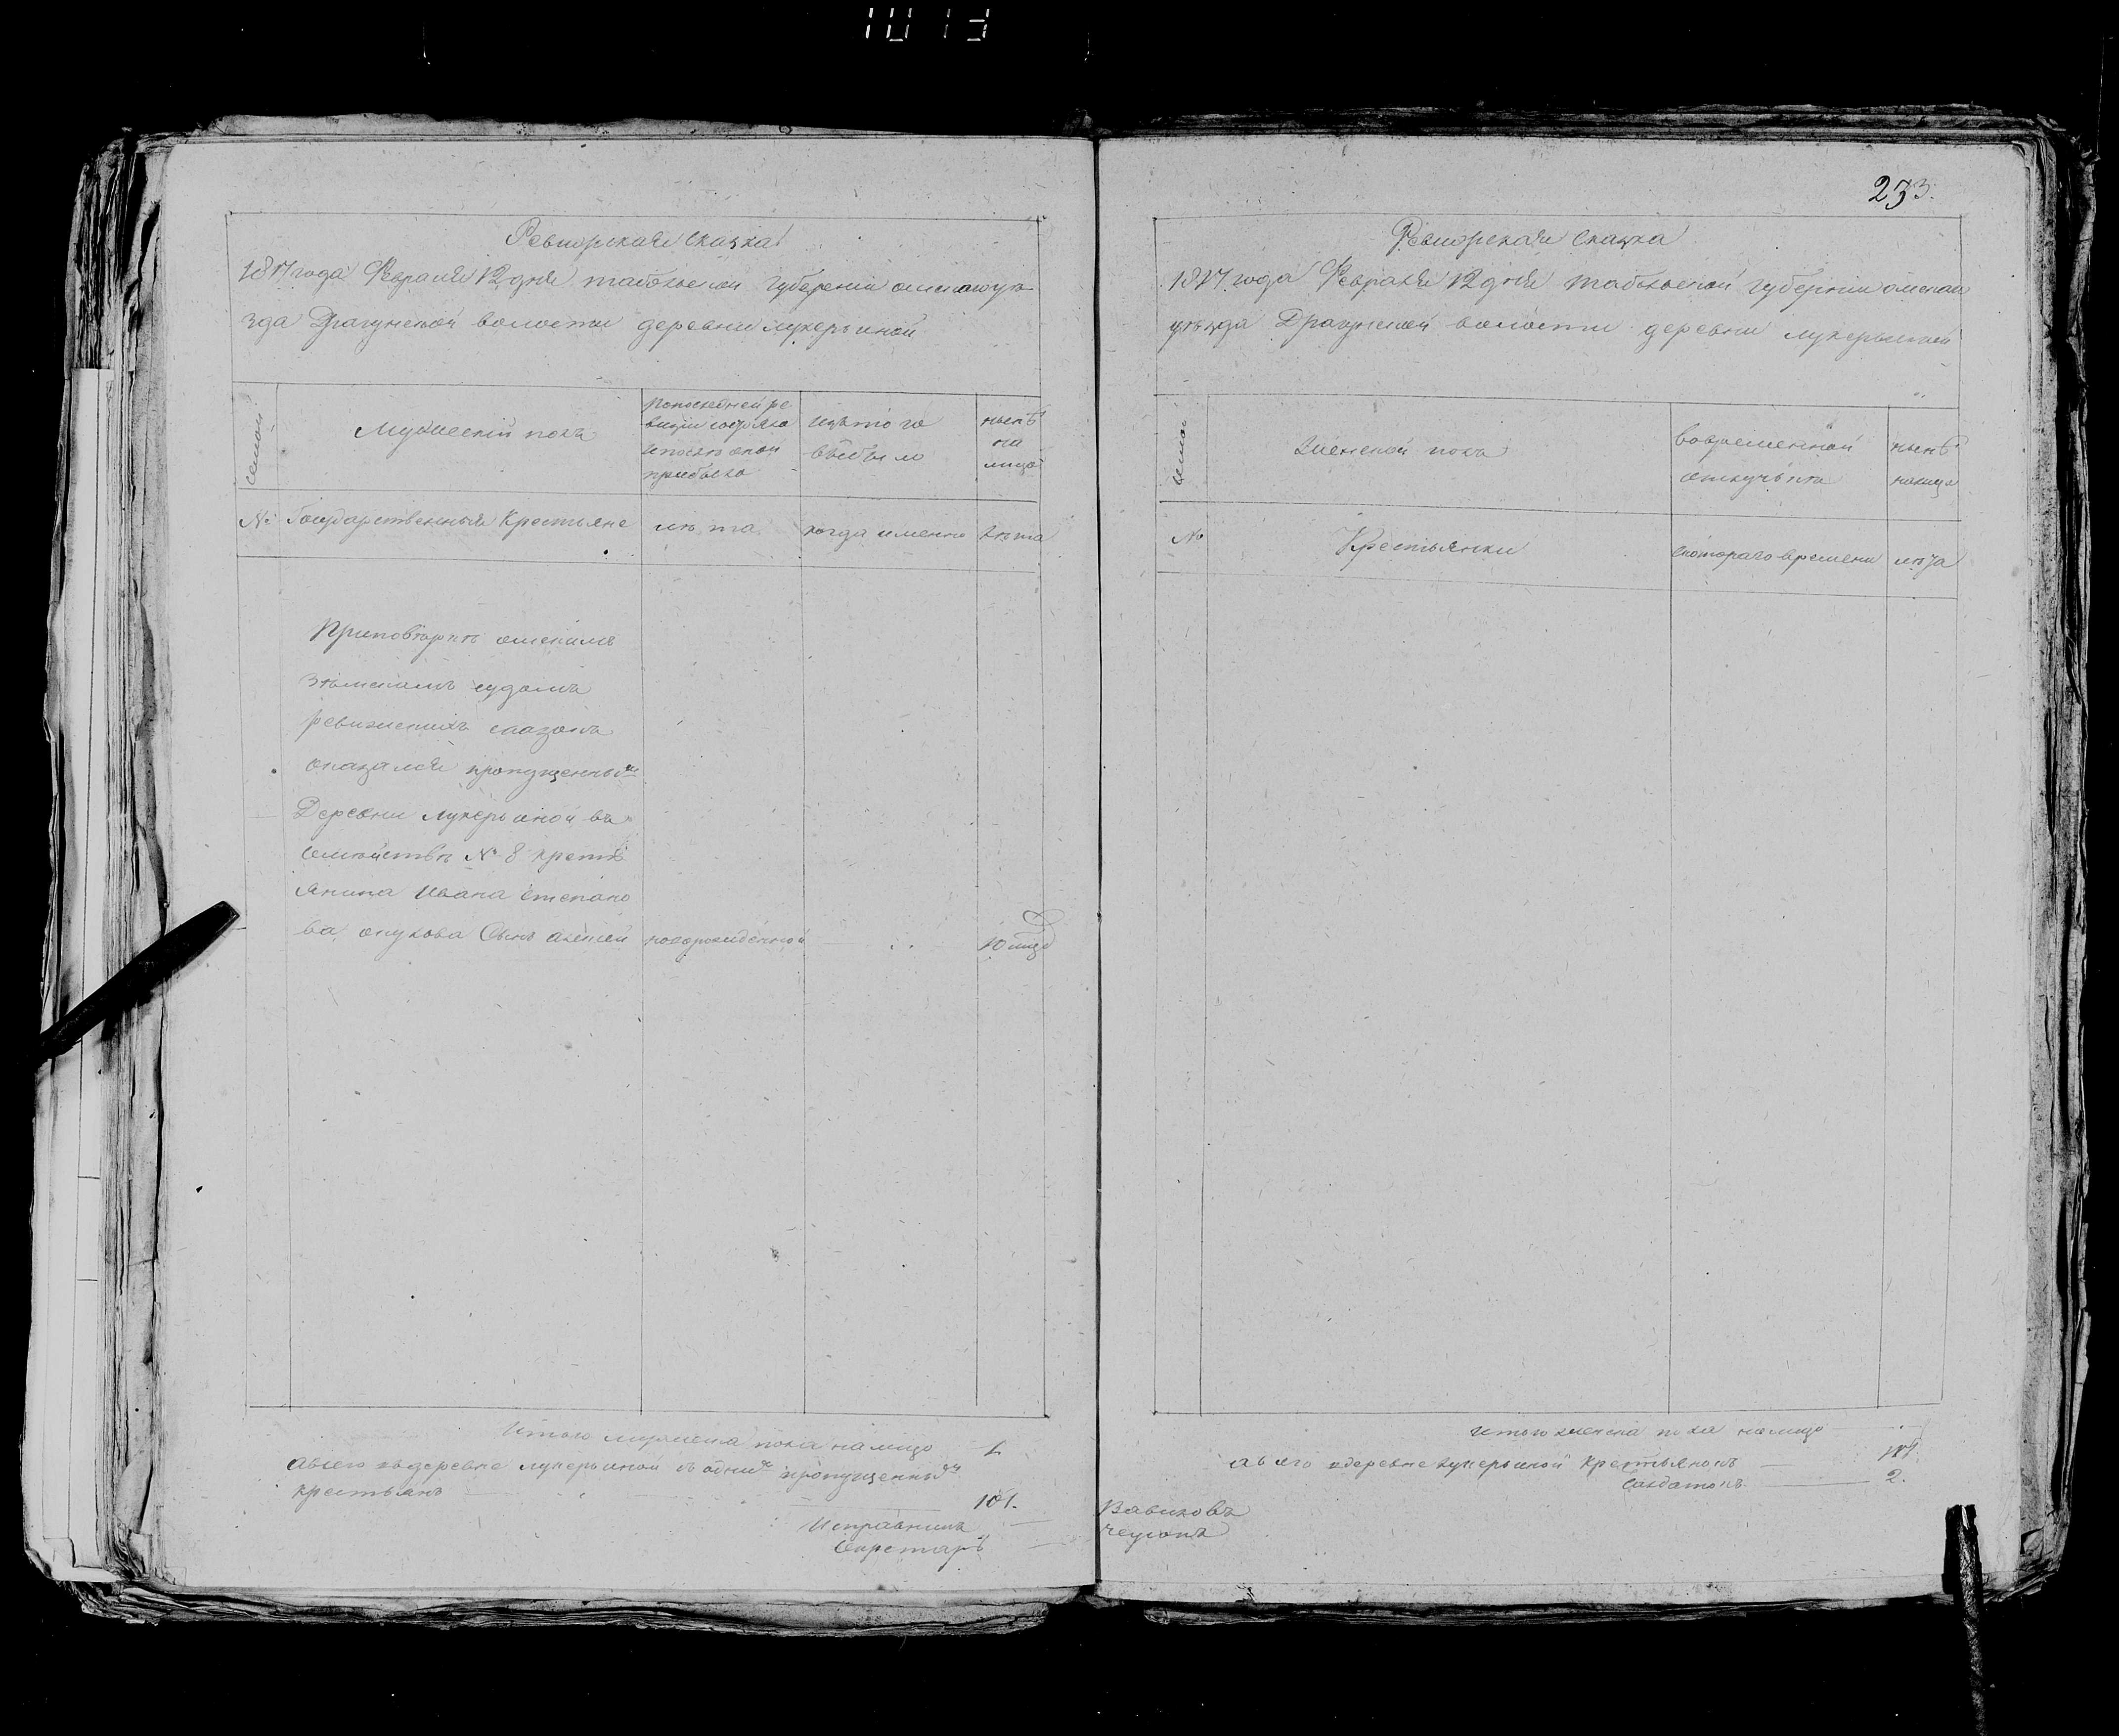 1013
Ревизская Сказка
1817 года Февраля 12 дня тобольской губерній омскаго уѣ
зда Драгунской волости деревни лукерьиной
семьи
Мужескій полъ
По последней ре
визіи состояло
и после оной
прибыло
изъ того
выбыло
нынѣ
на
лицо
№
Государственныя Крестьяне
лѣта
когда именно
лѣта
При повѣрке омскимъ
земскимъ судомъ
ревижскихъ сказокъ
оказался пропущеннымъ
Деревни лукерьиной въ
семействѣ № 8 кресть
янина Ивана Степано
ва сынъ алексей
новорожденной
10 мцо
Итого мужеска пола на лицо 1
а всего въ деревне лукерьиной съ однимъ пропущеннымъ
крестьянъ
101.
Исправникъ
Секретарь
233.
Ревизская Сказка
1817 года Февраля 12 дня тобольской губерніи омскаго
уѣзда Драгунской волости деревни лукерьиной
семьи
Женской полъ
во временной
отлучкѣ
нынѣ
налицо
№
Крестьянки
с котораго времени
лѣта
итого женска пола на лицо
а всего в деревне лукерьиной крестьянокъ
Солдатокъ 2.